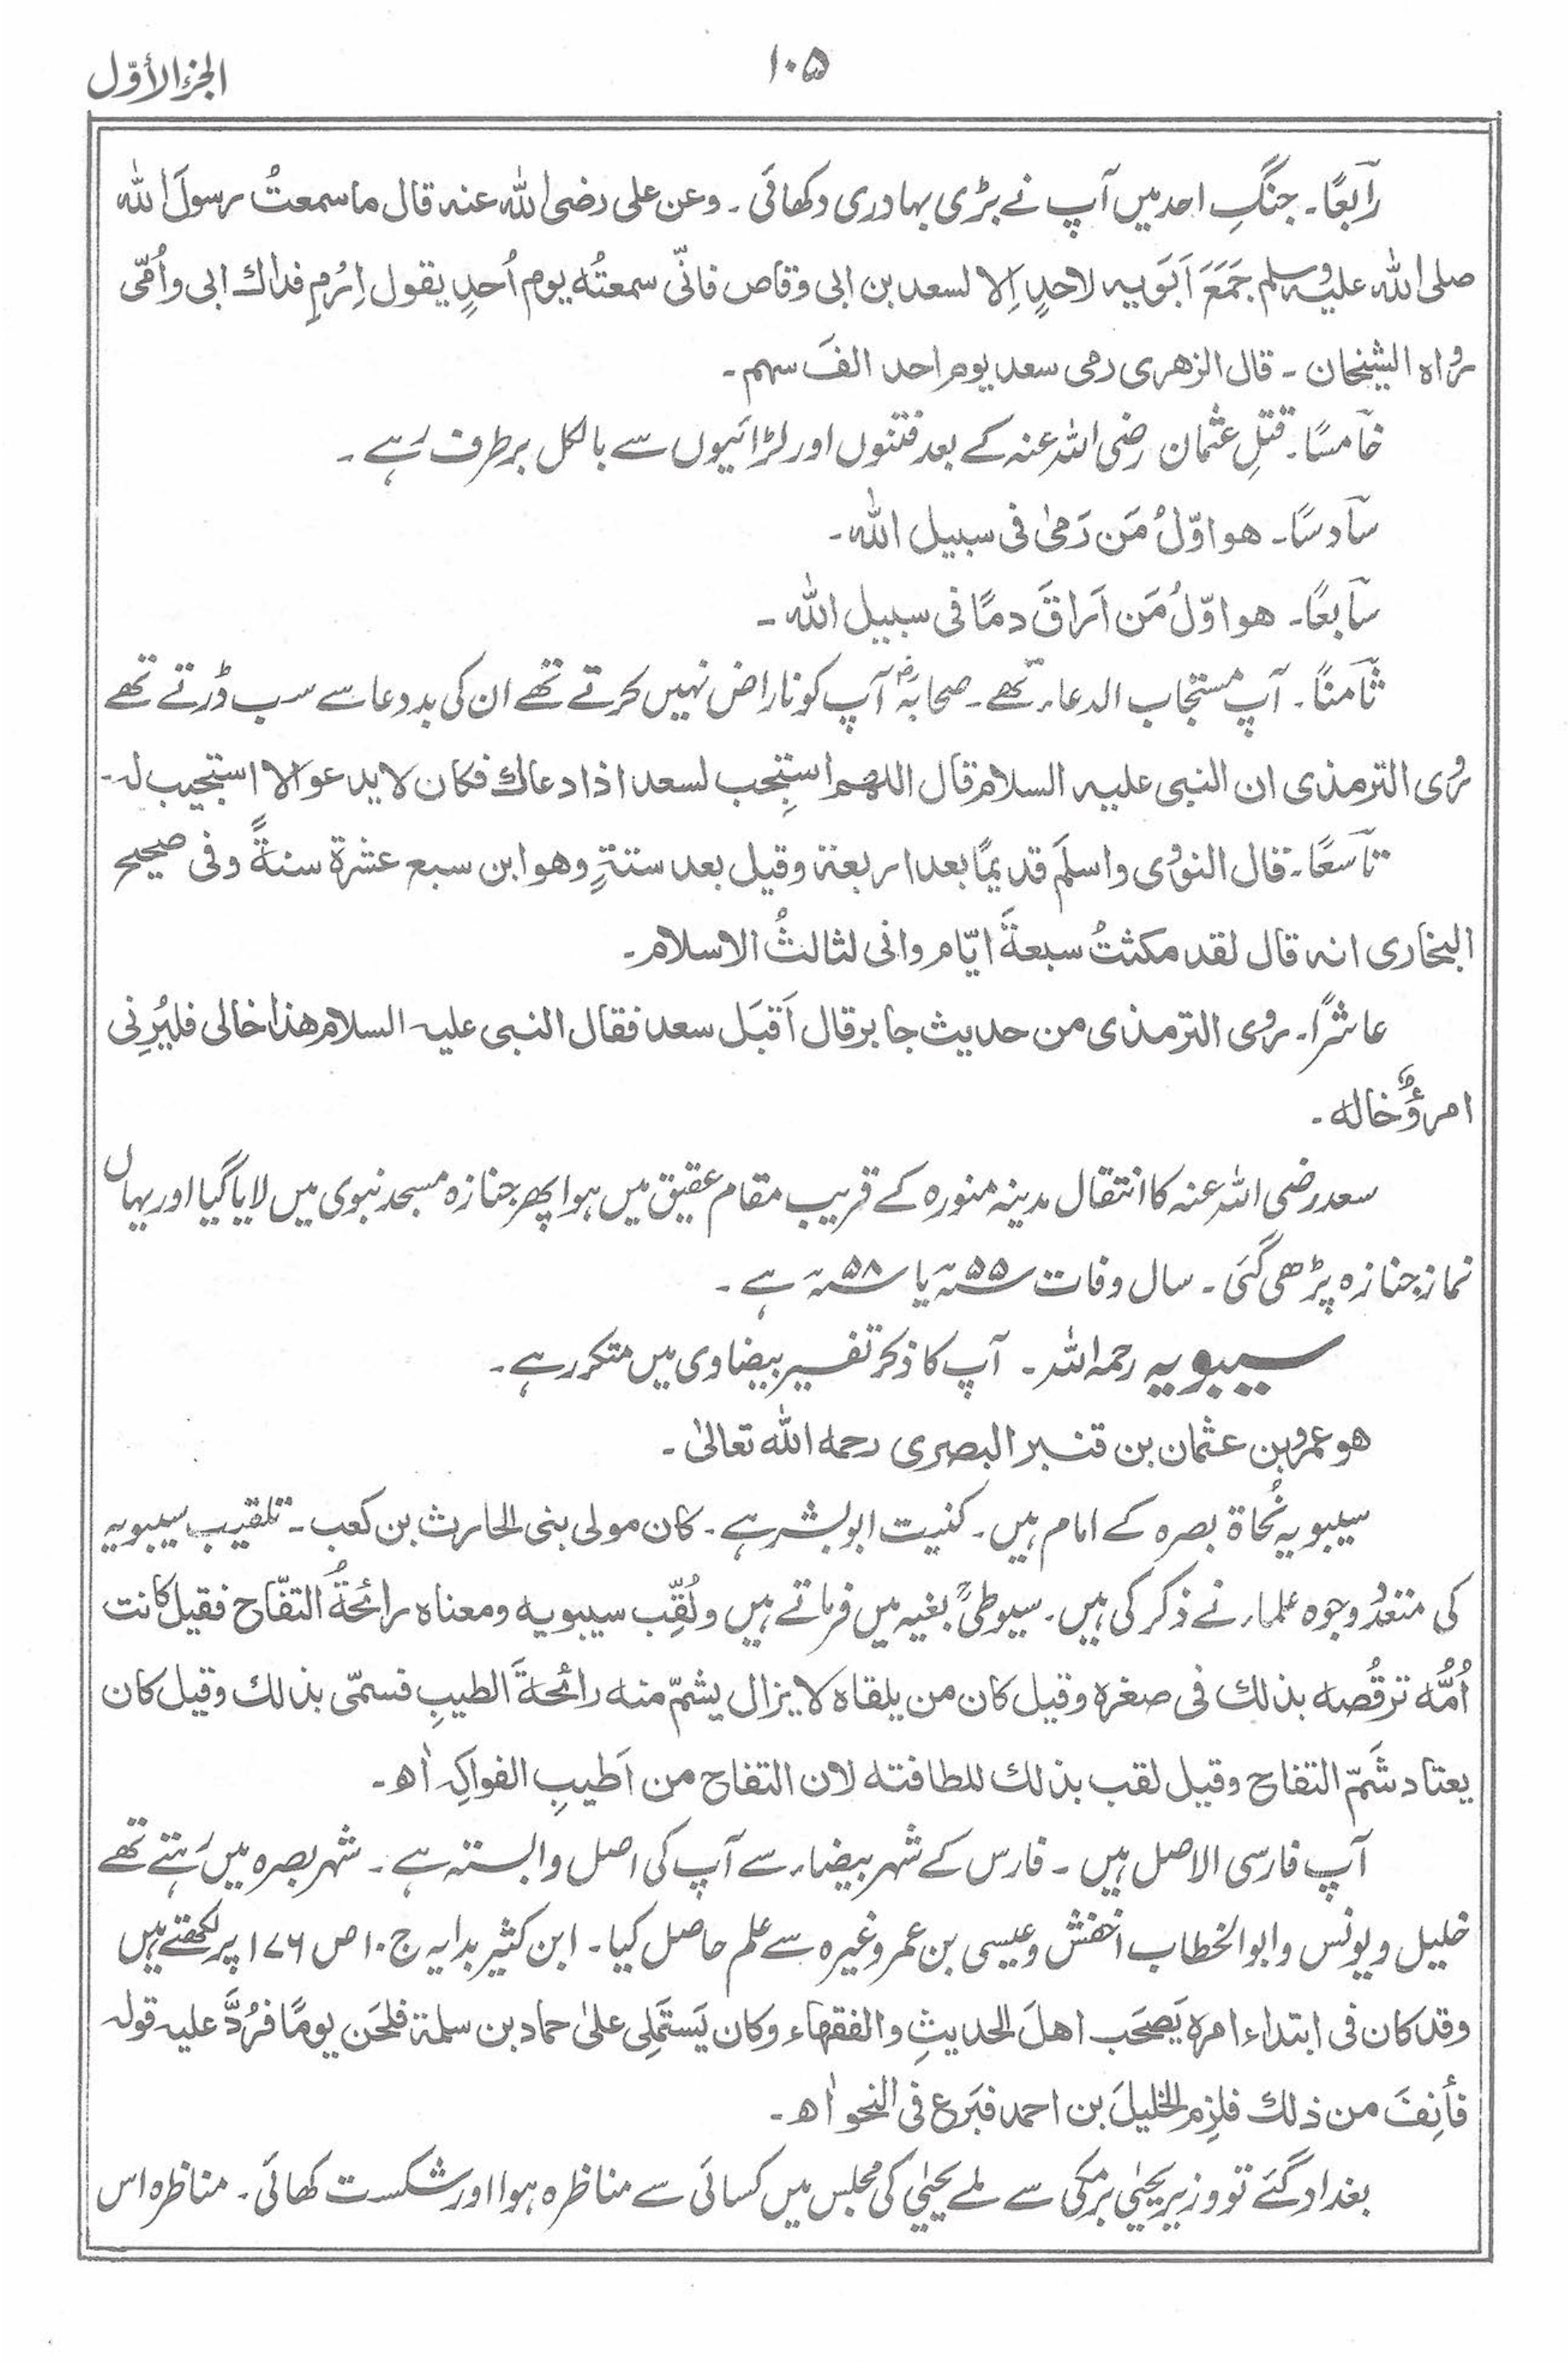 الجزء الأوّل
۱۰۵
رآبعًا۔ جنگِ احد میں آپ نے بڑی بہادری دکھائی۔ وعن علی رضی اللہ عنہ قال ما سمعتُ رسولَ اللہ
صلی اللہ علیہ وسلم جَمَعَ اَبَوَیہ لاحدٍ اِلا لسعد بن ابی وقاص فانّی سمعتُہ یوم اُحدٍ یقول اِرُمِ فداك ابی واُمّی
رواہ الشیخان ۔ قال الزھری رمی سعد یوم احد الفَ سہم۔
خآمسًا۔ قتلِ عثمان رضی اللہ عنہ کے بعد فتنوں اور لڑائیوں سے بالکل برطرف رہے ۔
سآدسًا۔ ھو اوّلُ مَن رَمیٰ فی سبیل اللہ۔
سآبعًا۔ ھو اوّلُ مَن اَراقَ دمًا فی سبیل اللہ ۔
ثآمنًا۔ آپ مستجاب الدعاء تھے۔ صحابہؓ آپ کو ناراض نہیں کرتے تھے ان کی بددعا سے سب ڈرتے تھے
روی الترمذی ان النبی علیہ السلام قال اللھم استجِب لسعد اذا دعاك فکان لا یدعو الا استجیب لہ۔
تآسعًا۔ قال النووی واسلَم قدیمًا بعد اربعۃ وقیل بعد ستۃٍ وھو ابن سبع عشرۃ سنۃً وفی صحیح
البخاری انہ قال لقد مکثتُ سبعۃَ ایّام وانی لثالثُ الاسلام۔
عاشرًا۔ روی الترمذی من حدیث جابر قال اَقبَل سعد فقال النبی علیہ السلام ھذا خالی فلیُرِنی
امرؤٌ خالہ ۔
سعد رضی اللہ عنہ کا انتقال مدینہ منورہ کے قریب مقام عقیق میں ہوا پھر جنازہ مسجد نبوی میں لایا گیا اور یہاں
نماز جنازہ پڑھی گئی ۔ سال وفات ۵۵ھ یا ۵۸ھ ہے ۔
سیبویہ رحمہ اللہ ۔ آپ کا ذکر تفسیر بیضاوی میں متکرر ہے ۔
ھو عمرو بن عثمان بن قنبر البصری رحمہ اللہ تعالیٰ ۔
سیبویہ نُحاۃ بصرہ کے امام ہیں۔ کنیت ابو بشر ہے ۔ کان مولی بنی الحارث بن کعب ۔ تلقیب سیبویہ
کی متعدد وجوہ علماء نے ذکر کی ہیں۔ سیوطیؒ بغیہ میں فرماتے ہیں ولُقِّب سیبویہ ومعناہ رائحۃُ التفّاح فقیل کانت
اُمُّہ ترقُصہ بذلك فی صغرہ وقیل کان من یلقاہ لا یزال یشمّ منہ رائحۃَ الطیبِ فسمّی بذلك وقیل کان
یعتاد شَمّ التفاح وقیل لقب بذلك للطافتہ لان التفاح من اَطیبِ الفواکِہ اٰھ۔
آپ فارسی الاصل ہیں ۔ فارس کے شہر بیضاء سے آپ کی اصل وابستہ ہے ۔ شہر بصرہ میں رہتے تھے
خلیل و یونس وابو الخطاب اخفش وعیسی بن عمر وغیرہ سے علم حاصل کیا۔ ابن کثیر بدایہ ج ۱۰ ص ۱۷۶ پر لکھتے ہیں
وقد کان فی ابتداء امرہ یَصحَب اھلَ الحدیثِ والفقھاء وکان یَستَملِی علیٰ حماد بن سلمۃ فلحَن یومًا فرُدَّ علیہ قولہ
فأنِفَ من ذلك فلزِم الخلیلَ بن احمد فبَرع فی النحو اٰھ۔
بغداد گئے تو وزیر یحییٰ برمکی سے ملے یحییٰ کی مجلس میں کسائی سے مناظرہ ہوا اور شکست کھائی۔ مناظرہ اس